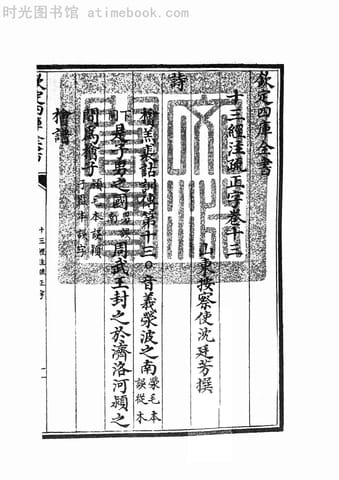 时光图书馆 atimebook.com
欽定四庫全書
十三經注疏正字卷十三
山東按察使沈廷芳撰
詩
檜羔裘詁訓傳第十三○音義滎波之南滎毛本誤從木
是子男之國周武王封之於濟洛河潁之
間為檜子
檜譜
欽定四庫全書
十三經注疏正字